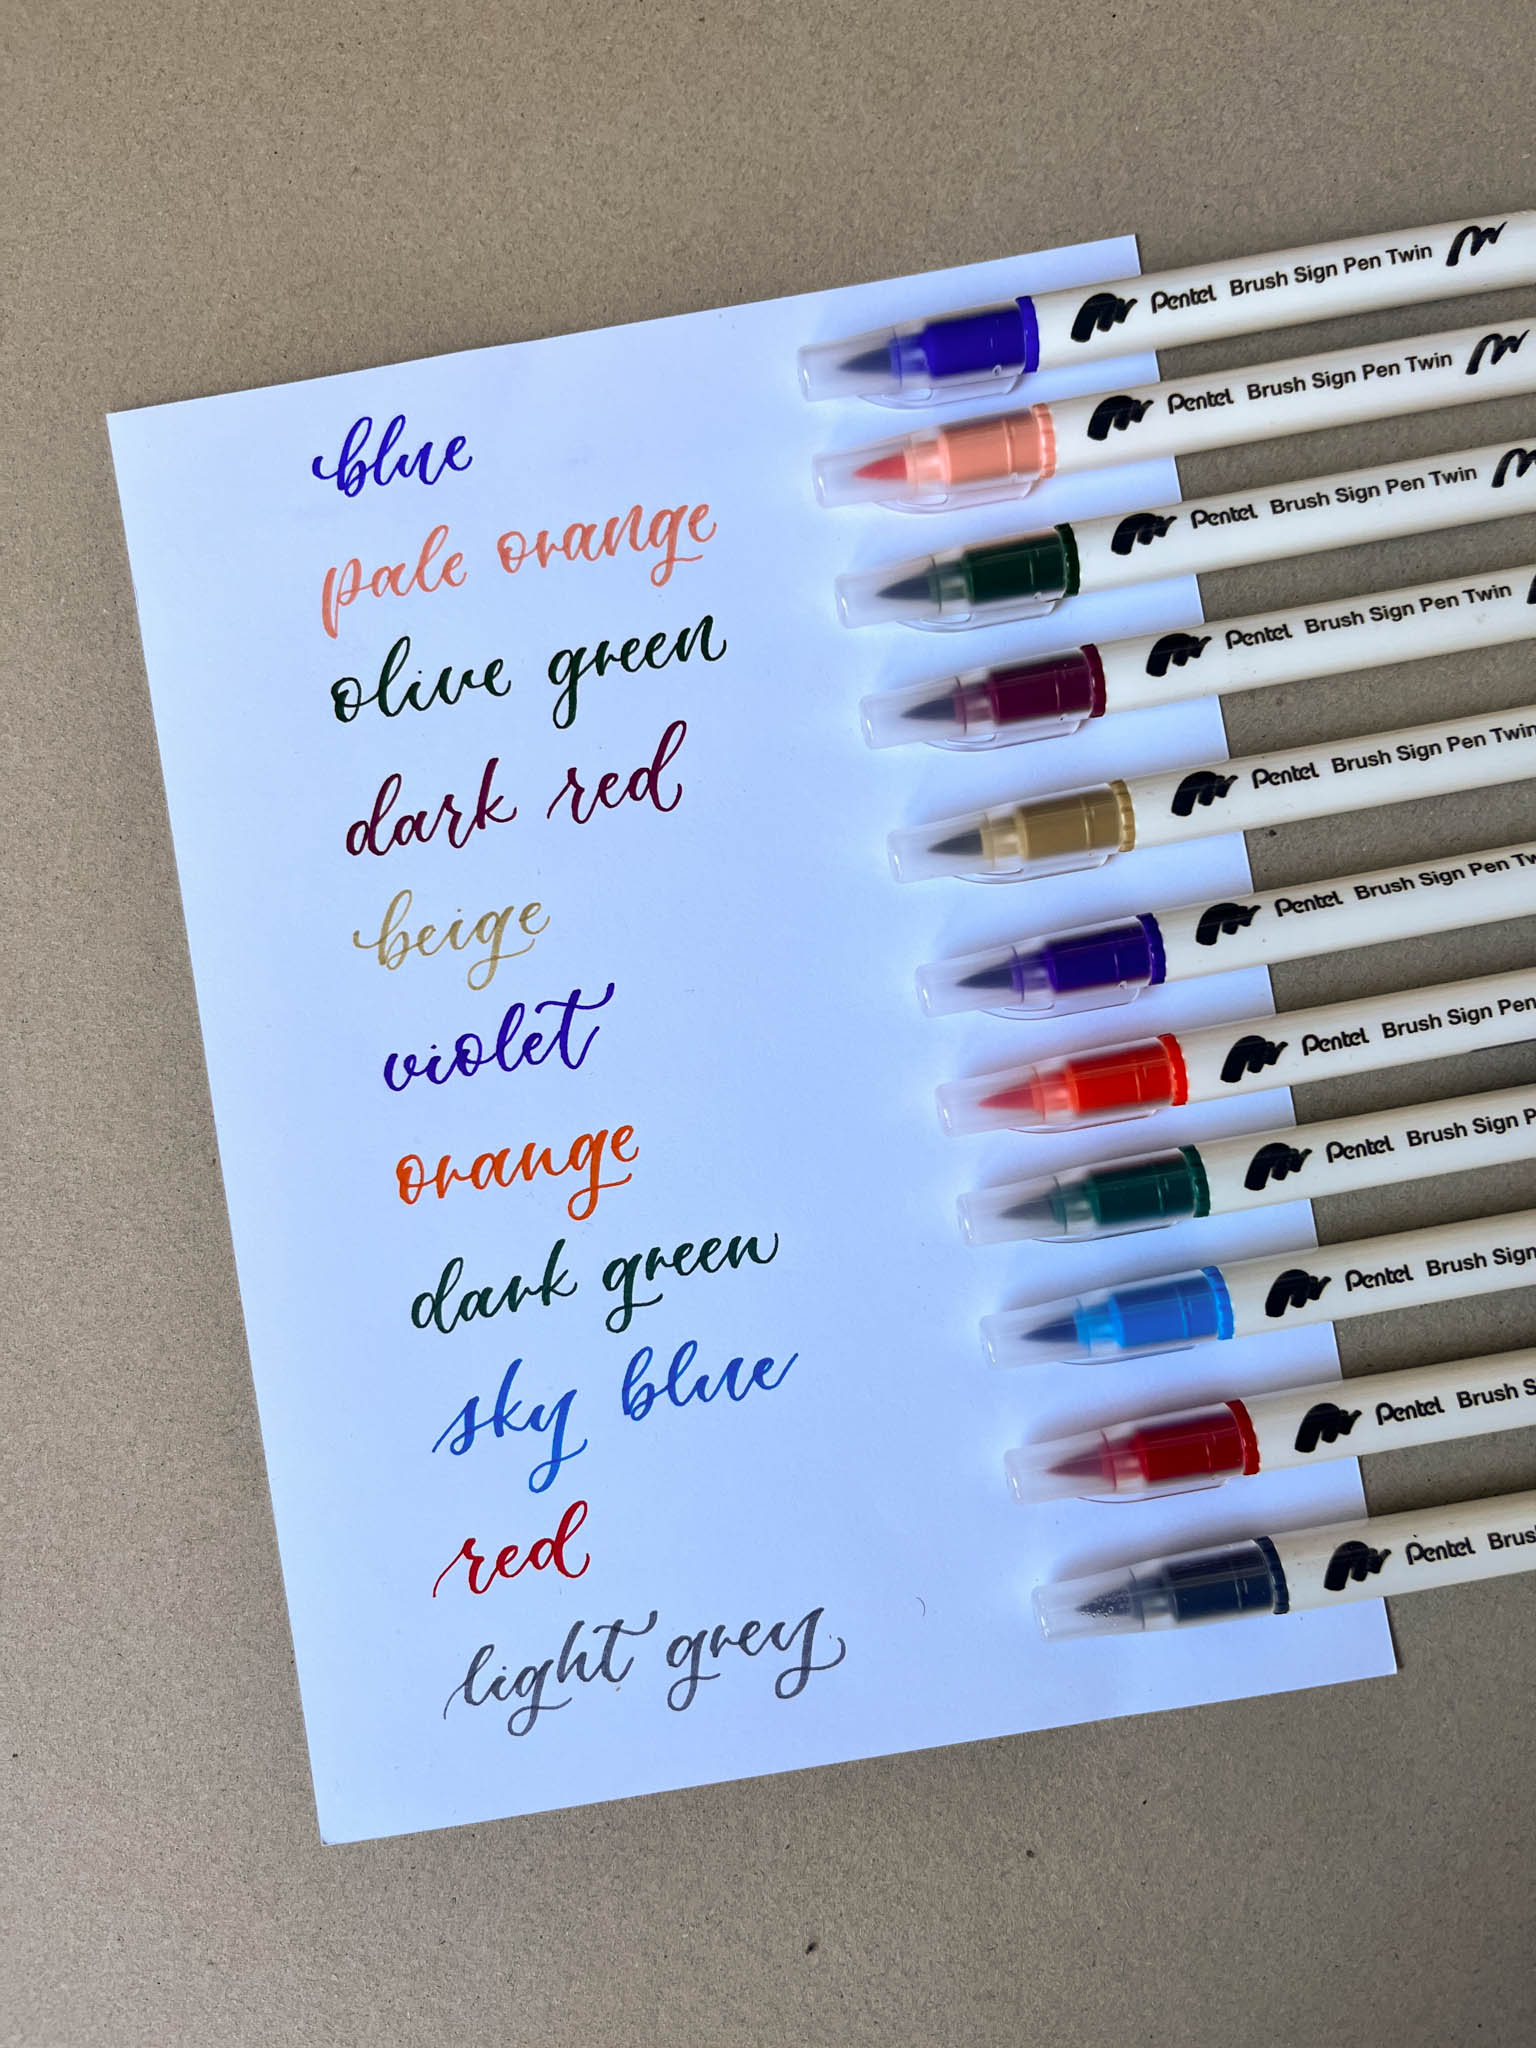 blue
pale orange
olive green
dark red
beige
violet
orange
dark green
sky blue
red
light grey
Pentel Brush Sign Pen Twin
Pentel Brush Sign Pen Twin
Pentel Brush Sign Pen Twin
Pentel Brush Sign Pen Twin
Pentel Brush Sign Pen Twin
Pentel Brush Sign Pen Tw
Pentel Brush Sign Pen
Pentel Brush Sign P
Pentel Brush Sign
Pentel Brush S
Pentel Brus